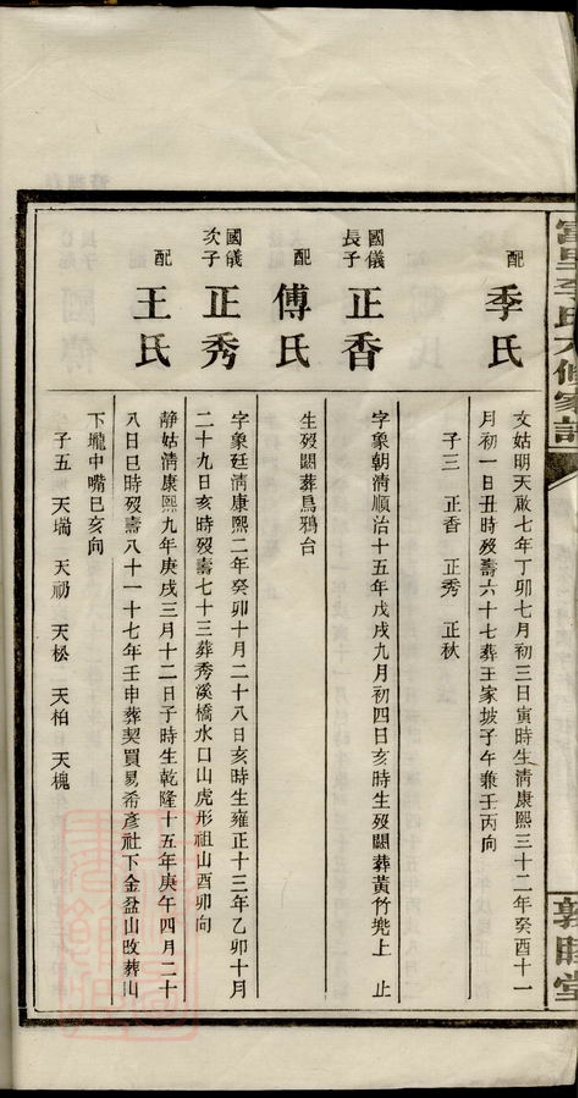 富里李氏六修家譜
敦睦堂
配
季氏
文姑明天啟七年丁卯七月初三日寅時生清康熙三十二年癸酉十一
月初一日丑時歿壽六十七葬王家坡子午兼壬丙向
子三 正香 正秀 正秋
國儀
長子
正香
字象朝清順治十五年戊戌九月初四日亥時生歿闕葬黃竹兠上 止
配
傅氏
生歿闕葬鳥鴉台
國儀
次子
正秀
字象廷清康熙二年癸卯十月二十八日亥時生雍正十三年乙卯十月
二十九日亥時歿壽七十三葬秀溪橋水口山虎形祖山酉卯向
配
王氏
静姑淸康熙九年庚戌三月十二日子時生乾隆十五年庚午四月二十
八日巳時歿壽八十一十七年壬申葬契買易希彥社下金盆山改葬山
下壠中嘴巳亥向
子五 天瑞 天礽 天松 天柏 天槐